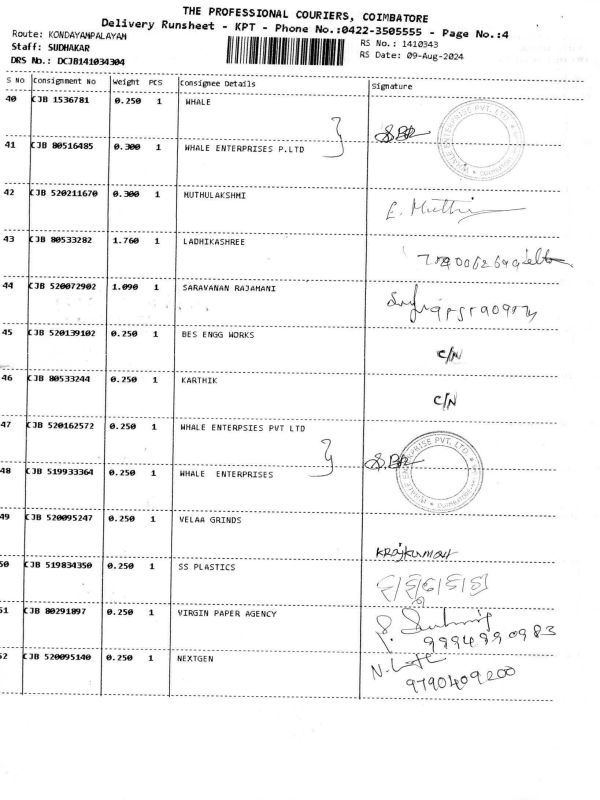 THE PROFESSIONAL COURIERS, COIMBATORE
Delivery Runsheet - KPT - Phone No.:0422-3505555 - Page No.:4
Route: KONDAYAMPALAYAM
Staff: SUDHAKAR
RS No.: 1410343
DRS No.: DCJB141034304
RS Date: 09-Aug-2024
S No Consignment No Weight PCS Consignee Details Signature
40 CJB 1536781 0.250 1 WHALE
41 CJB 80516485 0.300 1 WHALE ENTERPRISES P.LTD
WHALE ENTERPRISE PVT. LTD. COIMBATORE
42 CJB 520211670 0.300 1 MUTHULAKSHMI
43 CJB 80533282 1.760 1 LADHIKASHREE
44 CJB 520072902 1.090 1 SARAVANAN RAJAMANI
45 CJB 520139102 0.250 1 BES ENGG WORKS C/N
46 CJB 80533244 0.250 1 KARTHIK C/N
47 CJB 520162572 0.250 1 WHALE ENTERPSIES PVT LTD
48 CJB 519933364 0.250 1 WHALE ENTERPRISES
WHALE ENTERPRISE PVT. LTD. COIMBATORE
49 CJB 520095247 0.250 1 VELAA GRINDS
KRajkumar
50 CJB 519834350 0.250 1 SS PLASTICS
51 CJB 80291897 0.250 1 VIRGIN PAPER AGENCY
9994890983
52 CJB 520095140 0.250 1 NEXTGEN
9790409200